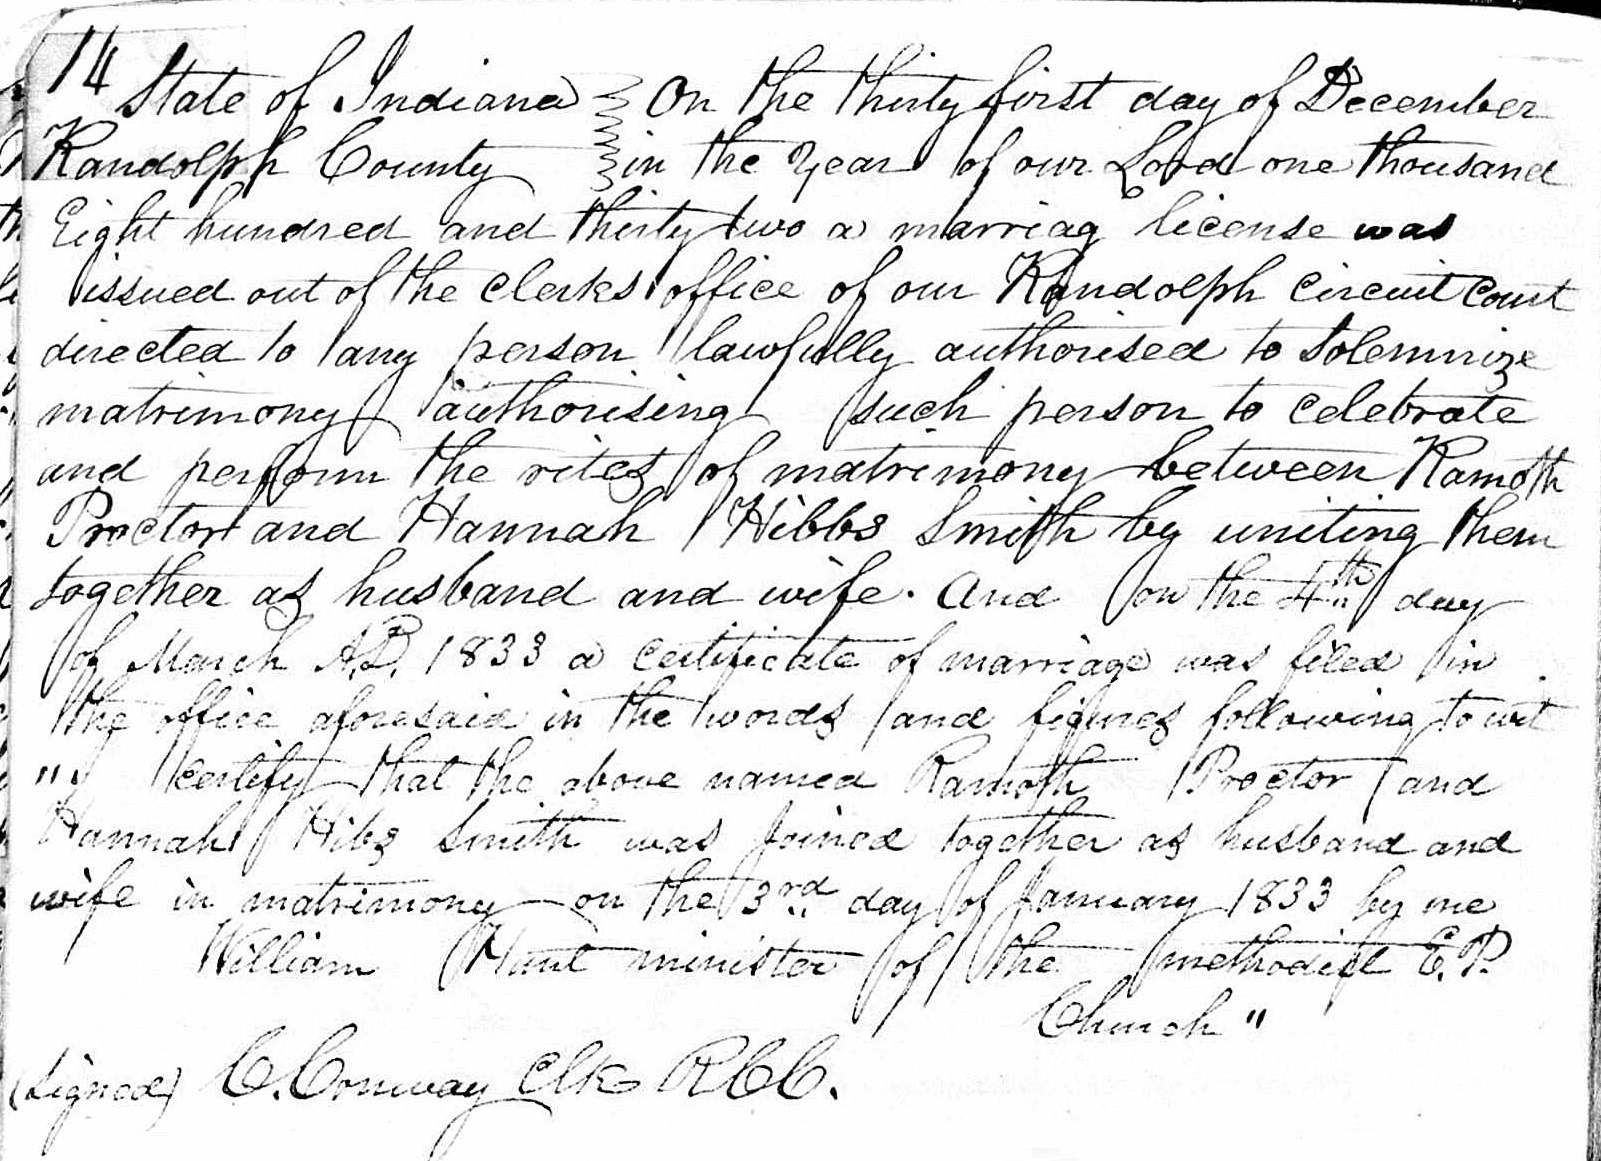 14
State of Indiana } On the thirty first day of December
Randolph County } in the year of our Lord one thousand
Eight hundred and thirty two a marriag license was
issued out of the clerks office of our Randolph circuit court
directed to any person lawfully authorised to solemnize
matrimony authorising such person to celebrate
and perform the rites of matrimony between Ramoth
Proctor and Hannah Hibbs Smith by uniting them
together as husband and wife. And on the 4th day
of March A.D. 1833 a certificate of marriage was filed in
the office aforesaid in the words and figures following to wit
" certify that the above named Ramoth Proctor and
Hannah Hibs Smith was joined together as husband and
wife in matrimony on the 3rd day of January 1833 by me
William Hunt minister of the methodist E. P.
Church "
(signed) C. Conway Clk R C C.